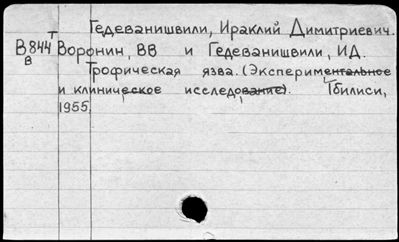 Гедеванишвили, Ираклий Димитриевич.
В844 Т Воронин, ВВ и Гедеванишвили, ИД.
в
Трофическая язва. (Экспериментальное
и клиническое исследование). Тбилиси,
1955.